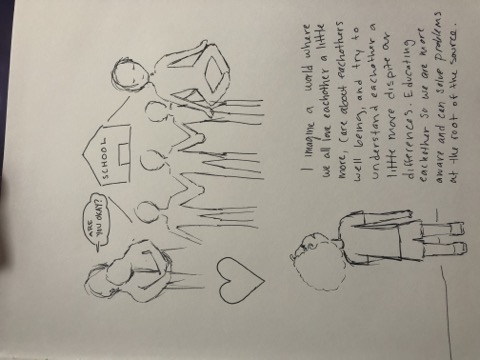 ARE
YOU OKAY?
SCHOOL
I imagine a world where
we all love eachother a little
more, care about eachothers
well being, and try to
understand eachother a
little more dispite our
differences. Educating
eachother so we are more
aware and can solve problems
at the root of the source.